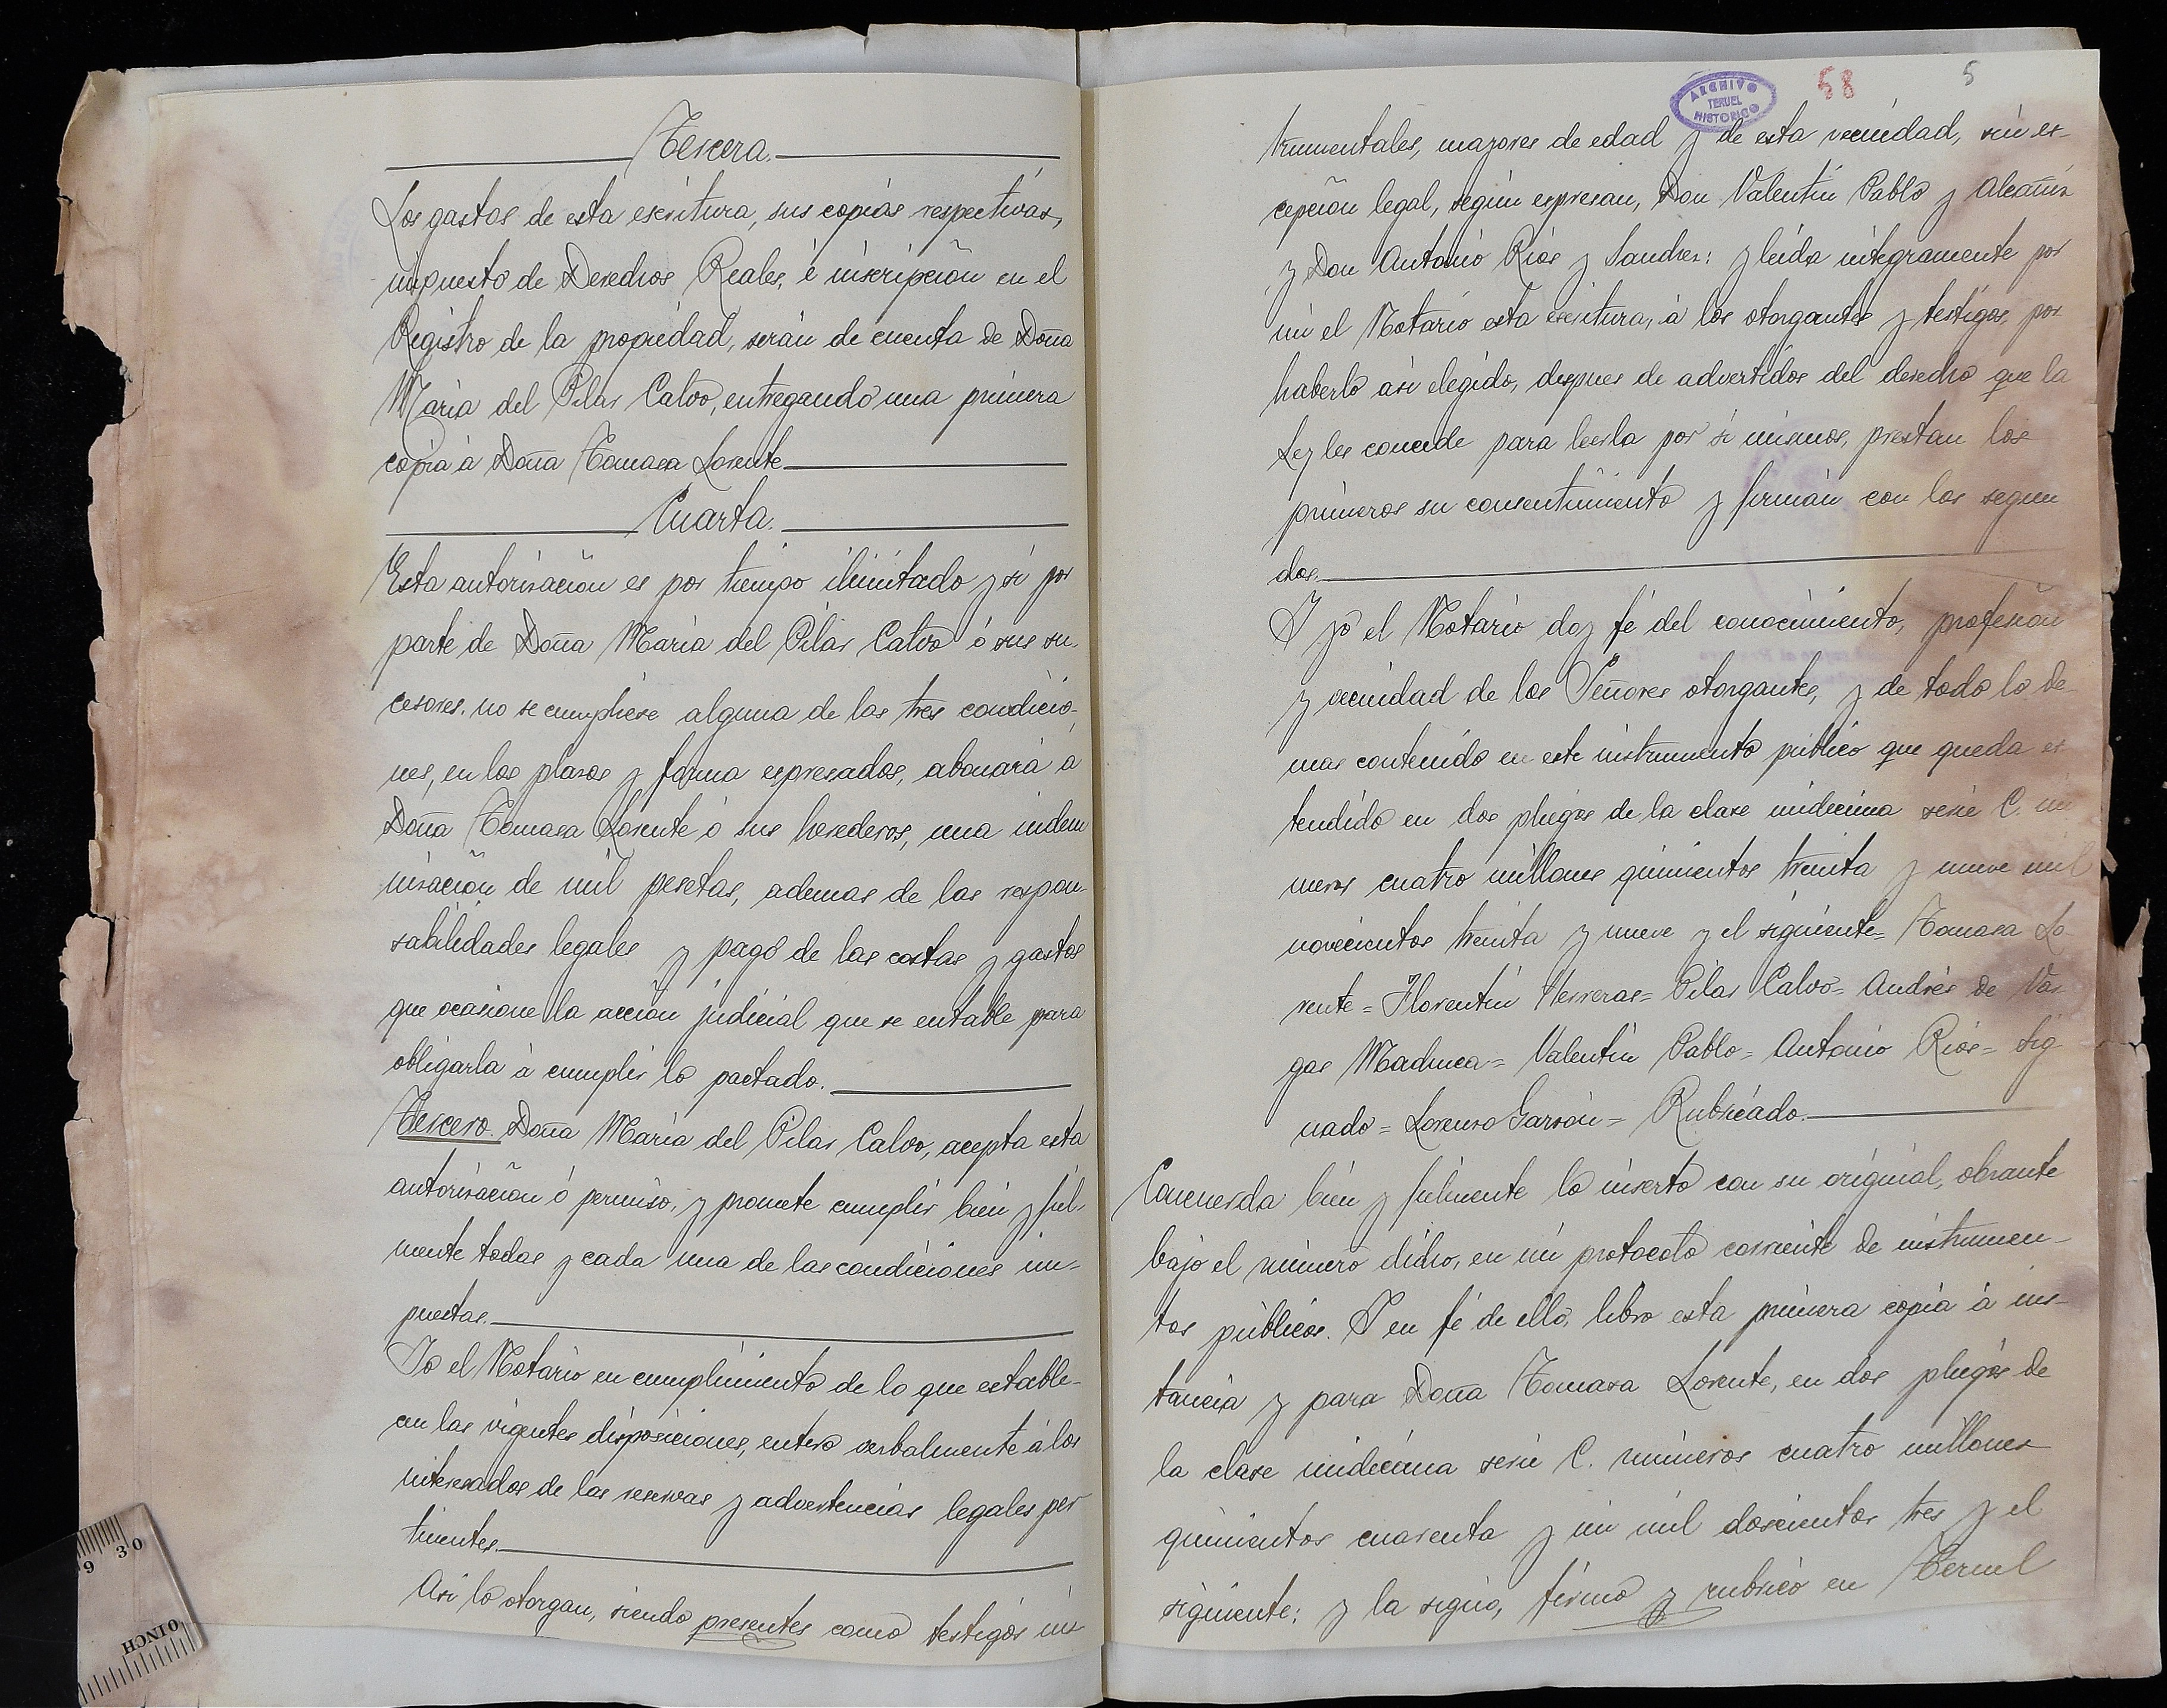 Tercera.
Los gastos de esta escritura, sus copias respectivas,
impuesto de Derechos Reales, é inscripción en el
Registro de la propiedad, serán de cuenta de Doña
María del Pilar Calvo, entregando una primera
copia á Doña Tomasa Lorente
Cuarta.
Esta autorización es por tiempo ilimitado y si por
parte de Doña María del Pilar Calvo ó sus su-
cesores, no se cumpliese alguna de las tres condicio-
nes, en los plazos y forma espresados, abonará á
Doña Tomasa Lorente ó sus herederos, una indem
nización de mil pesetas, ademas de las respon-
sabilidades legales y pago de las costas y gastos
que ocasione la acción judicial que se entable para
obligarla á cumplir lo pactado.
Tercero. Doña María del Pilar Calvo, acepta esta
autorización ó permiso, y promete cumplir bien y fiel-
mente todas y cada una de las condiciones im-
puestas.
Yo el Notario en cumplimiento de lo que estable-
cen las vigentes disposiciones, entero verbalmente á los
interesados de las reservas y advertencias legales per
tinentes.
Así lo otorgan, siendo presentes como testigos ins
ARCHIVO
TERUEL
HISTORICO
58
5
trumentales, mayores de edad y de esta vecindad, sin es-
cepción legal, según espresan, Don Valentín Pablo y Alcañiz
y Don Antonio Ríos y Sanchez: y leída integramente por
mi el Notario esta escritura, á los otorgantes y testigos, por
haberlo asi elegido, despues de advertidos del derecho que la
Ley les concede para leerla por si mismos, prestan los
primeros su consentimiento y firman con los segun
dos.
Y yo el Notario doy fé del conocimiento, profesión
y vecindad de los Señores otorgantes, y de todo lo de-
mas contenido en este instrumento público que queda es
tendido en dos pliegos de la clase undécima serie C. nú
meros cuatro millones quinientos treinta y nueve mil
novecientos treinta y nueve y el siguiente= Tomasa Lo-
rente = Florentín Herreras= Pilar Calvo= Andrés de Var
gas Machuca= Valentín Pablo= Antonio Ríos= Sig
nado = Lorenzo Garzón= Rubricado.
Concuerda bien y fielmente lo inserto con su original, obrante
bajo el número dicho, en mi protocolo corriente de instrumen-
tos públicos. Y en fé de ello, libro esta primera copia á ins-
tancia y para Doña Tomasa Lorente, en dos pliegos de
la clase undécima serie C. números cuatro millones
quinientos cuarenta y un mil doscientos tres y el
siguiente; y la signo, firmo y rubrico en Teruel
9 30
0 INCH